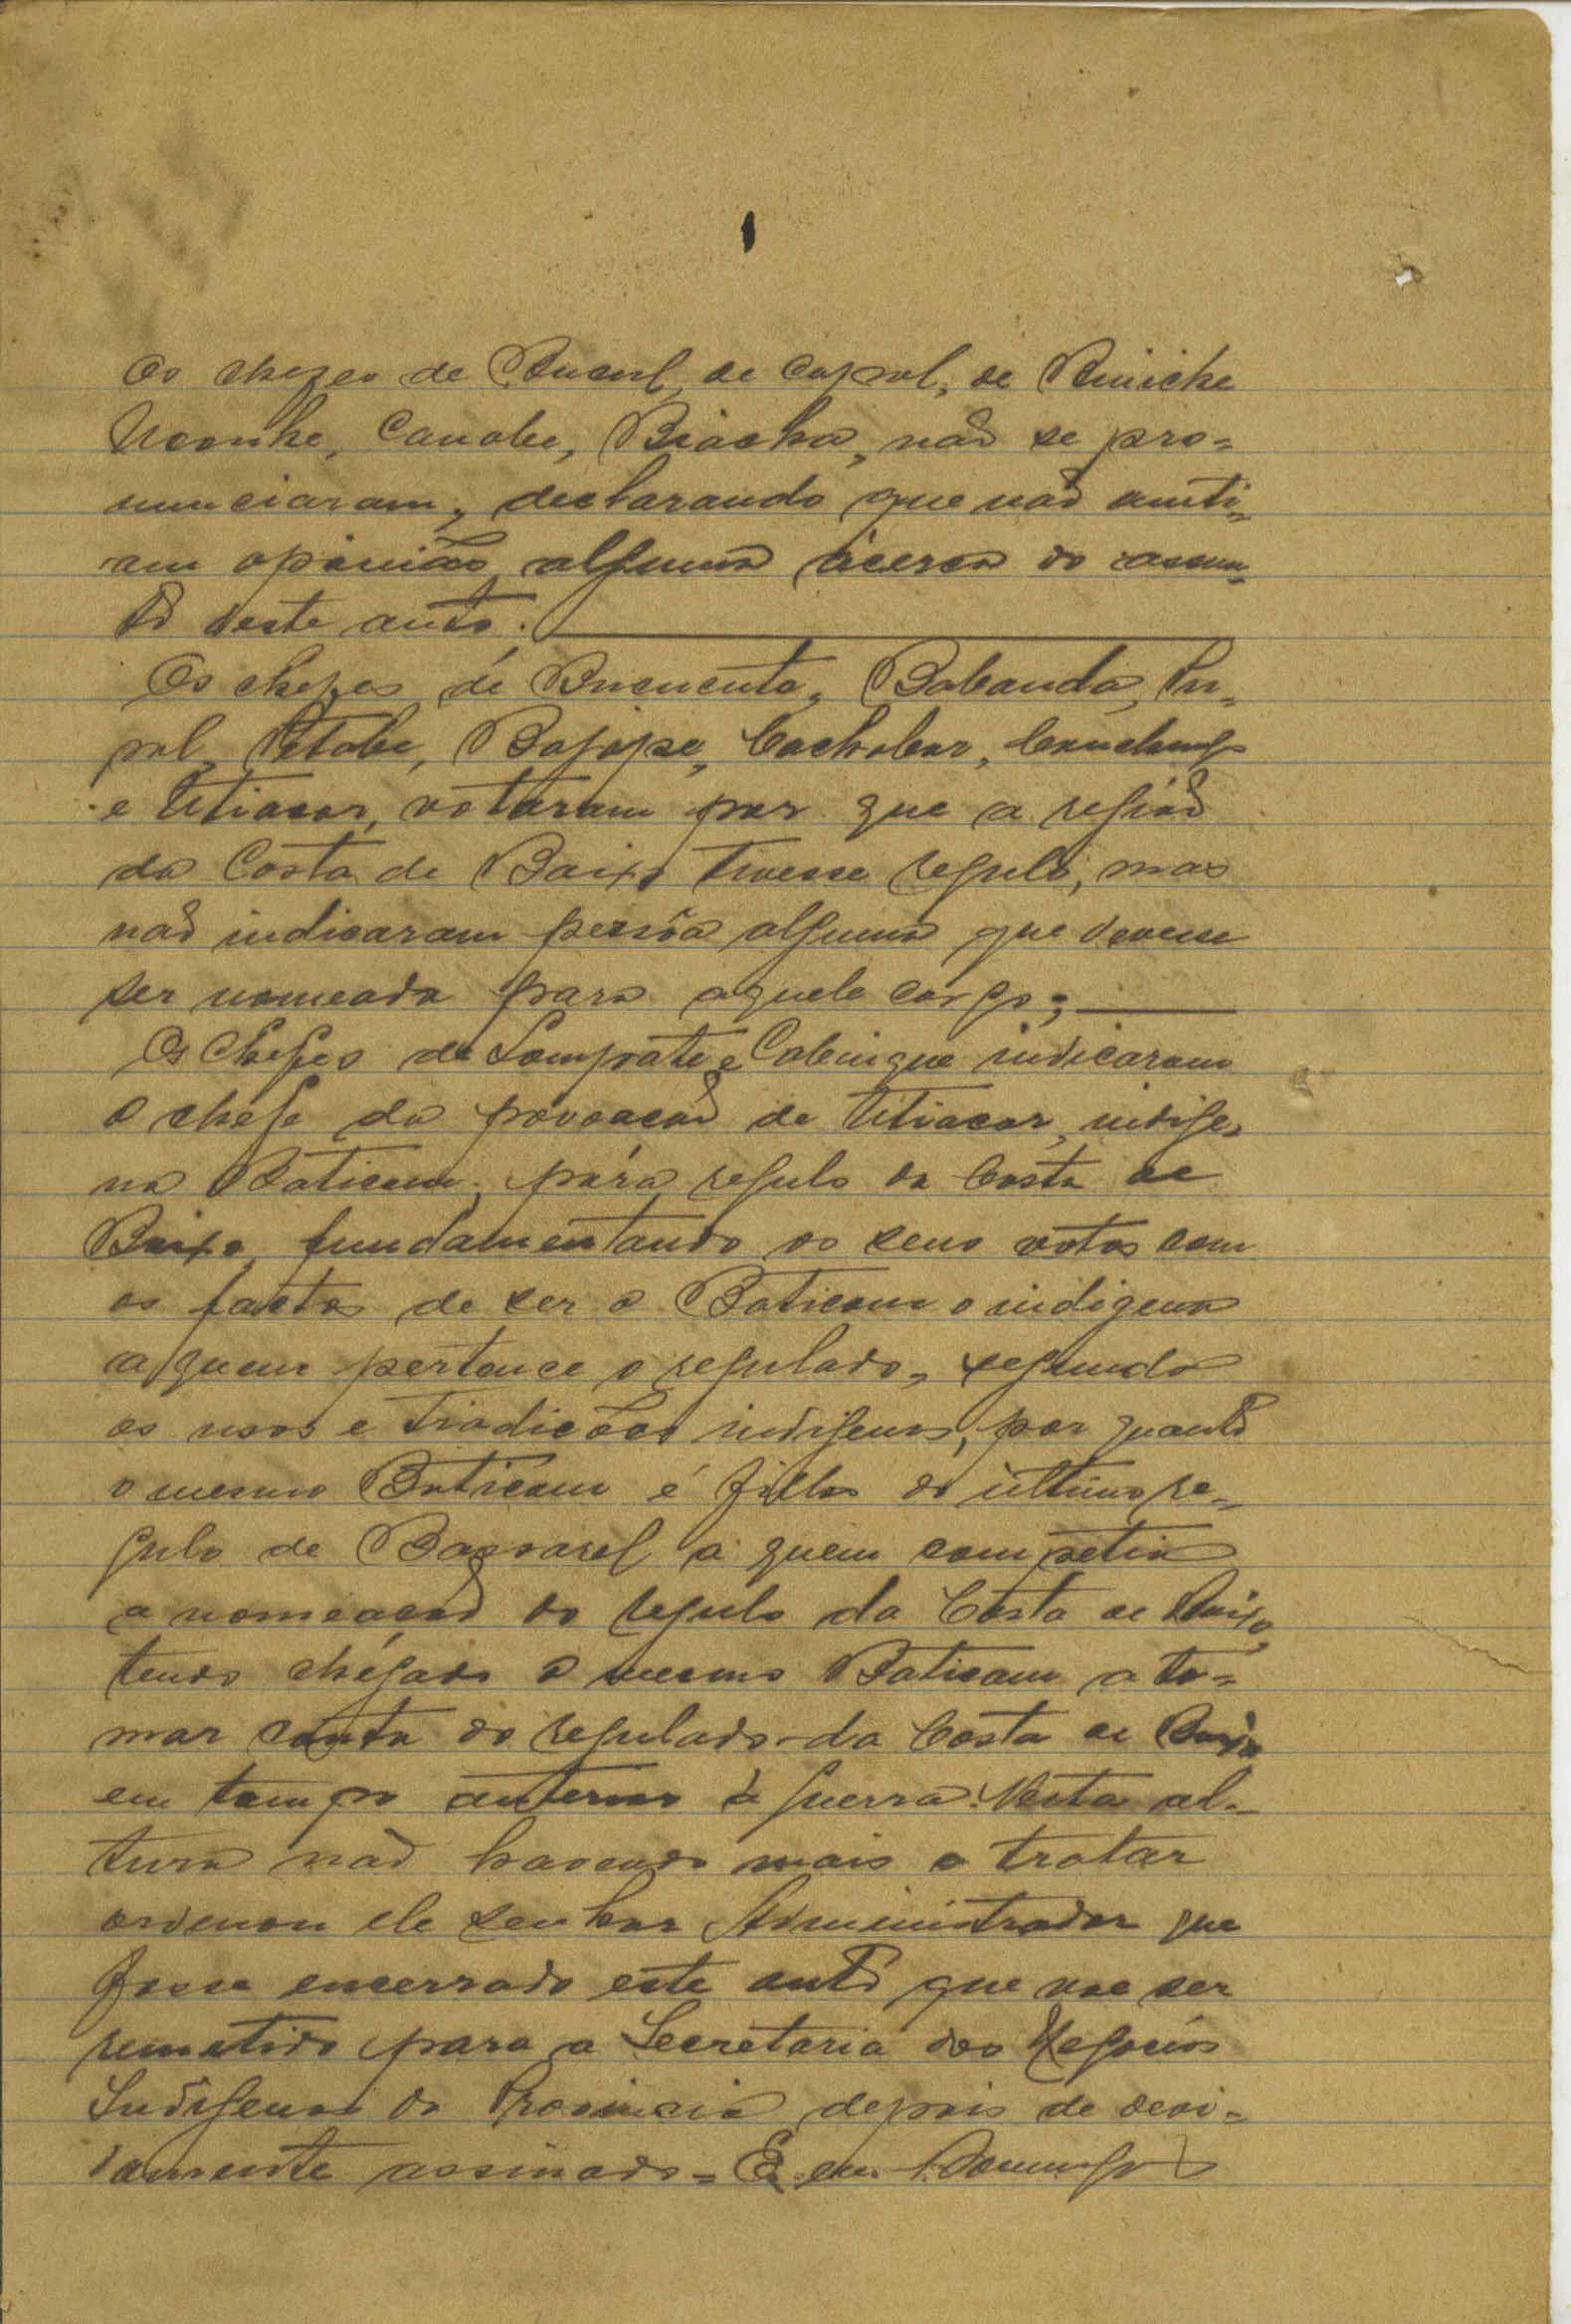 Os chefes de Bucul, de Capol, de Biniche
Uconhe, Canobe, Biacha, não se pro=
nunciaram, declarando que não emiti=
am opinião alguma ácerca do assun=
to deste auto.
Os chefes de Bucucuto, Babanda, Pu=
pol, Petabe, Bajope, Cachobar, Canchungo
e Utiacor, votaram por que a região
da Costa de Baixo tivesse regulo, mas
não indicaram pessôa alguma que devesse
ser nomeada para aquele cargo;
Os Chefes de Tomprate e Cabinque indicaram
o chefe da povoação de Utiacor, indige=
na Baticam, pára regulo da Costa de
Baixo, fundamentando os seus votos com
os factos de ser o Baticam o indigena
a quem pertence o regulado, segundo
os usos e tradições indigenas, por quanto
o mesmo Baticam é filho do ultimo re=
gulo de Bassarel a quem competia
a nomeação do regulo da Costa de Baixo,
tendo chegado o mesmo Baticam a to=
mar conta do regulado da Costa de Baixo
em tempo anterior á guerra. Nesta al=
tura não havendo mais a tratar
ordenou ele senhor Administrador que
fosse encerrado este auto que vae ser
remetido para a Secretaria dos Negocios
Indigenas da Provincia depois de devi=
damente assinado = E eu Domingos